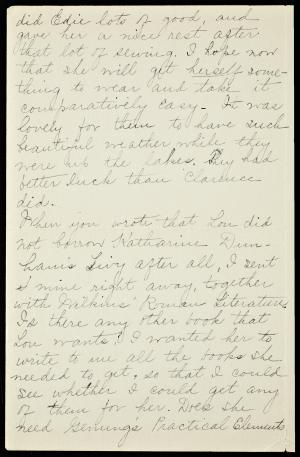 did Edie lots of good, and
gave her a nice rest after
that lot of sewing. I hope now
that she will get herself some-
thing to wear and take it
comparatively easy. It was
lovely for them to have such
beautiful weather while they
were up the lakes. They had
better luck than Clarence
did.
When you wrote that Lou did
not borrow Katharine Dun-
ham's Livy after all, I sent
mine right away, together
with Wilkins' Roman Literature.
Is there any other book that
Lou wants? I wanted her to
write to me all the books she
needed to get, so that I could
see whether I could get any
of them for her. Does she
need Genung's Practical Elements